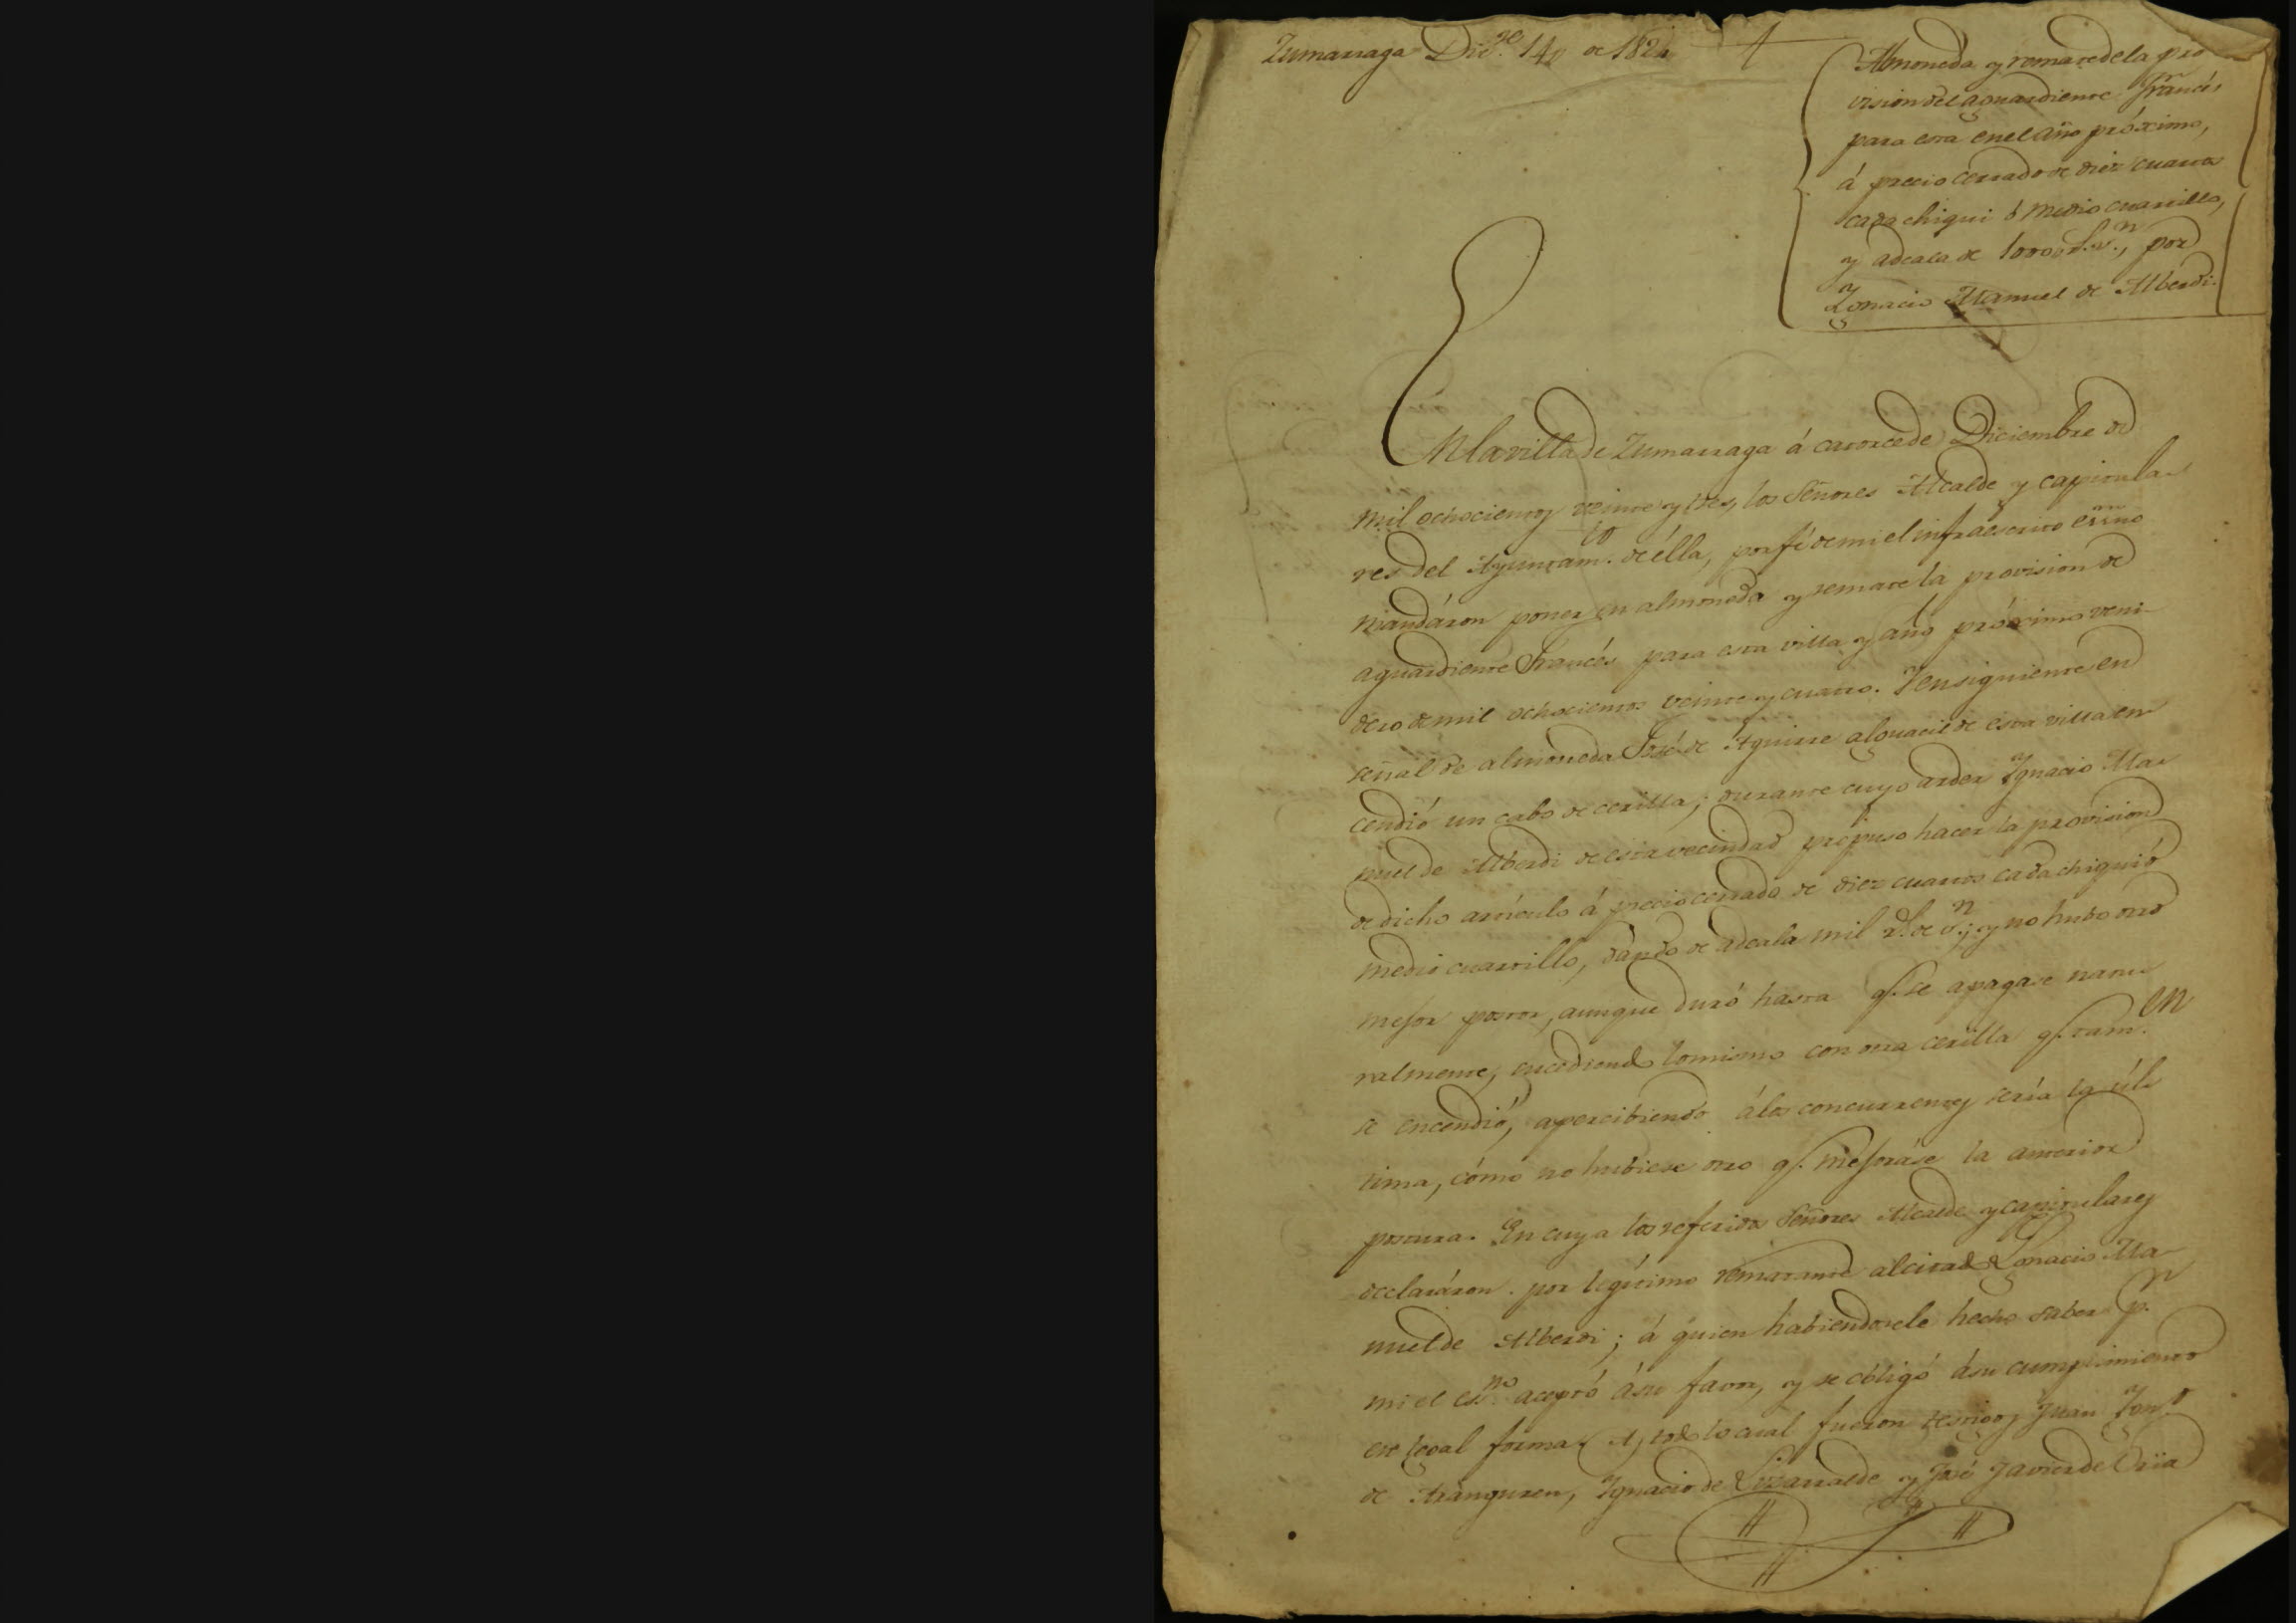 Zumarraga Dic.re 14 de 182
Almoneda y remate de la pro
vision del aguardiente Francés
para esta en el año próximo,
á precio cerrado de diez cuartos
cada chiqui ó medio cuartillo,
y adeala de 1000 r.s v.n, por
Ygnacio Manuel de Alberdi.
En la villa de Zumarraga á catorce de Diciembre de
mil ochocientos veinte y tres, los Señores Alcalde y capitula-
res del Ayuntam.to de élla, por fé de mi el infraescrito essno
mandáron poner en almoneda y remate la provision de
aguardiente Francés para esta villa y año próximo veni-
dero de mil ochocientos veinte y cuatro. Y ensiguiente en
señal de almoneda José de Aguirre alguacil de esta villa en-
cendió un cabo de cerilla; durante cuyo arder Ygnacio Ma-
nuel de Alberdi de esta vecindad propuso hacer la provision
de dicho artículo á precio cerrado de diez cuartos cada chiqui ó
medio cuartillo, dando de adeala mil r.s de v.n; y no hubo otro
mejor postor, aunque duró hasta q.e se apagase natu-
ralmente, sucediendo lo mismo con otra cerilla q.e tam.en
se encendió, apercibiendo á los concurrentes sería la úl-
tima, cómo no hubiese otro q.e mejoráse la anterior
postura. En cuya los referidos Señores Alcalde y capitulares
declaráron por legítimo rematante al citado Ygnacio Ma-
nuel de Alberdi; á quien habiendosele hecho saber p.r
mi el es.no aceptó á su favor, y se obligó á su cumplimiento
en legal forma. A todo lo cual fueron testigos Juan Ygn.o
de Aranguren, Ygnacio de Lizarralde y José Javier de Oria